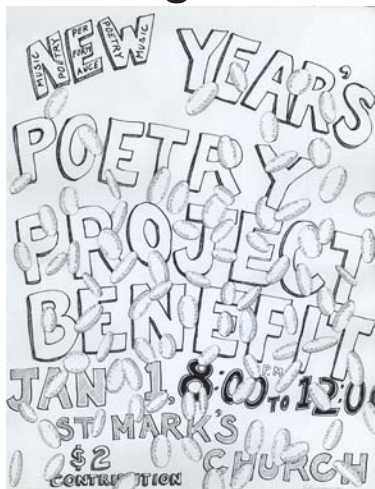 NEW YEAR'S
MUSIC POETRY PERFORMANCE POETRY MUSIC
POETRY
PROJECT
BENEFIT
JAN 1, 8:00 P.M. TO 12:00
ST MARK'S
$2 CHURCH
CONTRIBUTION